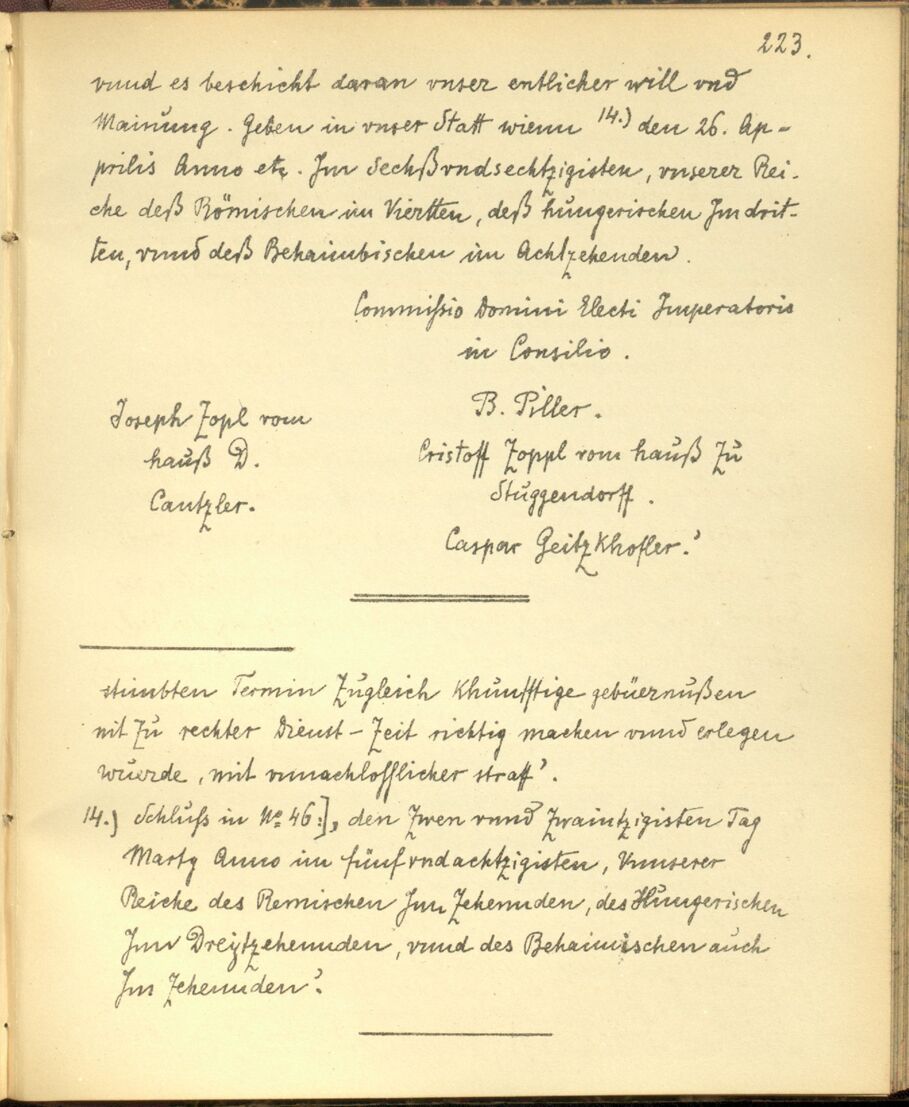 223.
vnnd es beschicht daran vnser entlicher will vnd
Mainung. Geben in vnser Statt wienn 14.) den 26. Ap-
prilis Anno etc. Im Sechßvndsechtzigisten, vnserer Rei-
che deß Römischen im Viertten, deß hungerischen Im drit-
ten, vnnd deß Behaimbischen im Achtzehenden.
Commißio Domini Electi Imperatoris
in Consilio.
Joseph Zopl vom
hauß D.
Cantzler.
B. Piller.
Cristoff Zoppl vom hauß Zu
Stuggendorff.
Caspar Geitzkhofler.'
stimbten Termin Zugleich khunfftige gebüernußen
nit Zu rechter Dienst-Zeit richtig machen vnnd erlegen
wuerde, mit vnnachloßlicher straff'.
14.) Schluß in No 46:], den Zwen vnnd Zwaintzigisten Tag
Marty Anno im fünfvndachtzigisten, Vnnserer
Reiche des Remischen Im Zehennden, des Hungerischen
Im Dreytzehennden, vnnd des Behaimischen auch
Im Zehennden'.